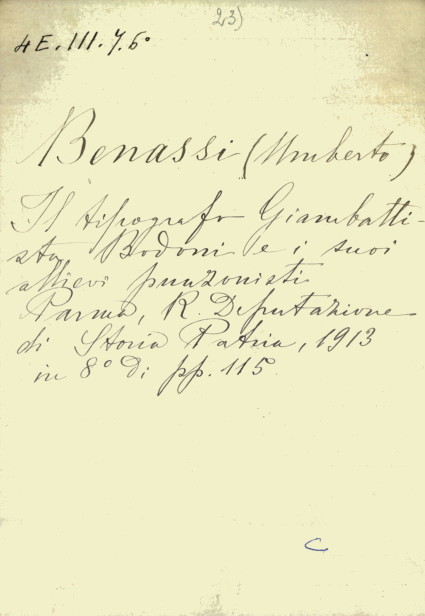 23)
4E.III.7.6°
Benassi (Umberto)
Il tipografo Giambatti-
sta Bodoni e i suoi
allievi punzonisti
Parma, R. Deputazione
di Storia Patria, 1913
in 8° di pp. 115
C